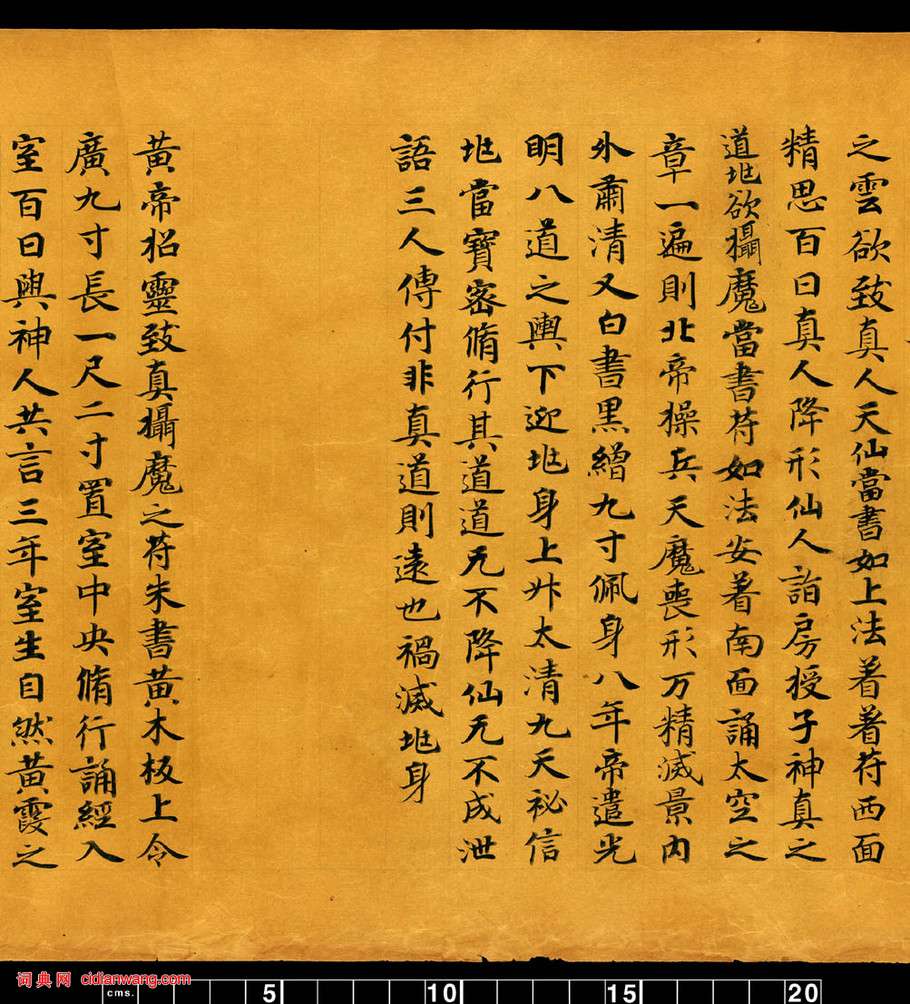 之雲欲致真人天仙當書如上法着着苻西面
精思百日真人降形仙人詣房授子神真之
道地欲攝魔當書苻如法安着南面誦太空之
章一遍則北帝操兵天魔喪形万精滅景内
外肅清又白書黑繒九寸佩身八年帝遣光
明八道之輿下迎地身上升太清九天祕信
地當寶密脩行其道道无不降仙无不成泄
語三人傳付非真道則遠也禍滅地身
黃帝招靈致真攝魔之苻朱書黃木板上令
廣九寸長一尺二寸置室中央脩行誦經入
室百日與神人共言三年室生自然黃霞之
词典网 cidianwang.com
cms. 5 10 15 20